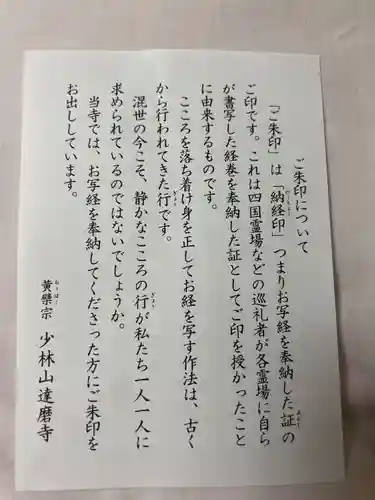 ご朱印について
「ご朱印」は「納経印」つまりお写経を奉納した証の
ご印です。これは四国霊場などの巡礼者が各霊場に自ら
が書写した経巻を奉納した証としてご印を授かったこと
に由来するものです。
こころを落ち着け身を正してお経を写す作法は、古く
から行われてきた行です。
混世の今こそ、静かなこころの行が私たち一人一人に
求められているのではないでしょうか。
当寺では、お写経を奉納してくださった方にご朱印を
お出ししています。
黄檗宗 少林山達磨寺